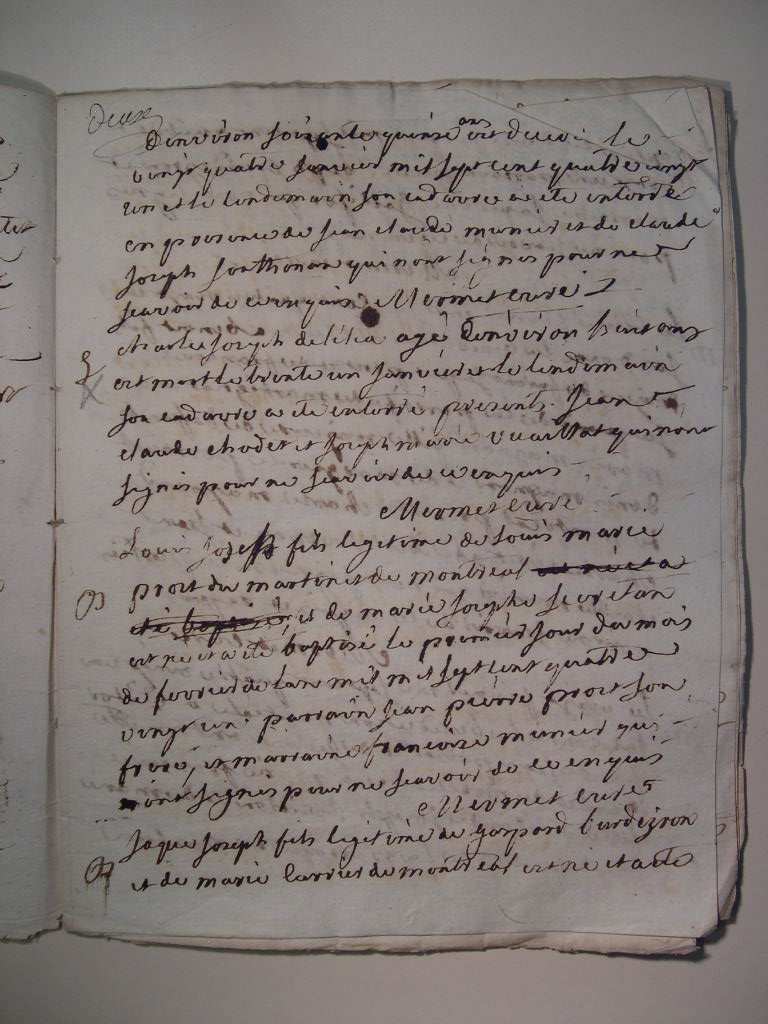 Deux
Denviron soixante quinse ans est decedé le
vingt quatre janvier mil sept cent quatre vingt
un et le lendemain son cadavre a ete enterré
en presence de jean claude munier et de claude
joseph jonthonan qui nont signés pour ne
scavoir de ce enquis Mermet curé
charles joseph delilia agé Denviron huit ans
est mort le trente un janvier et le lendemain
son cadavre a ete enterré presents jean
claude chodet et joseph marie vuaillat qui nont
signés pour ne scavoir de ce enquis
Mermet curé
Louis joseph fils legitime de louis marie
prost du martinet de montreal est né et a
eté baptisé, et de marie josephe secretan
est né et a ete baptisé le premier jour du mois
de fevrier de lan mil mil sept cent quatre
vingt un. parrain jean pierre prost son
frere, et marraine francoise munier qui
nont signés pour ne scavoir de ce enquis
Mermet curé
jaque joseph fils legitime de gaspard burdeyron
et de marie carrier de montreal est né et a ete